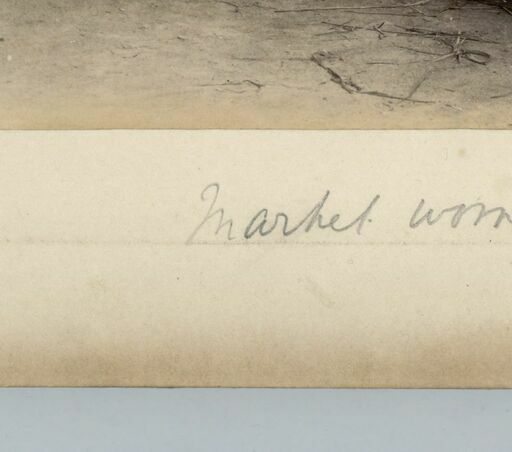 Market wom